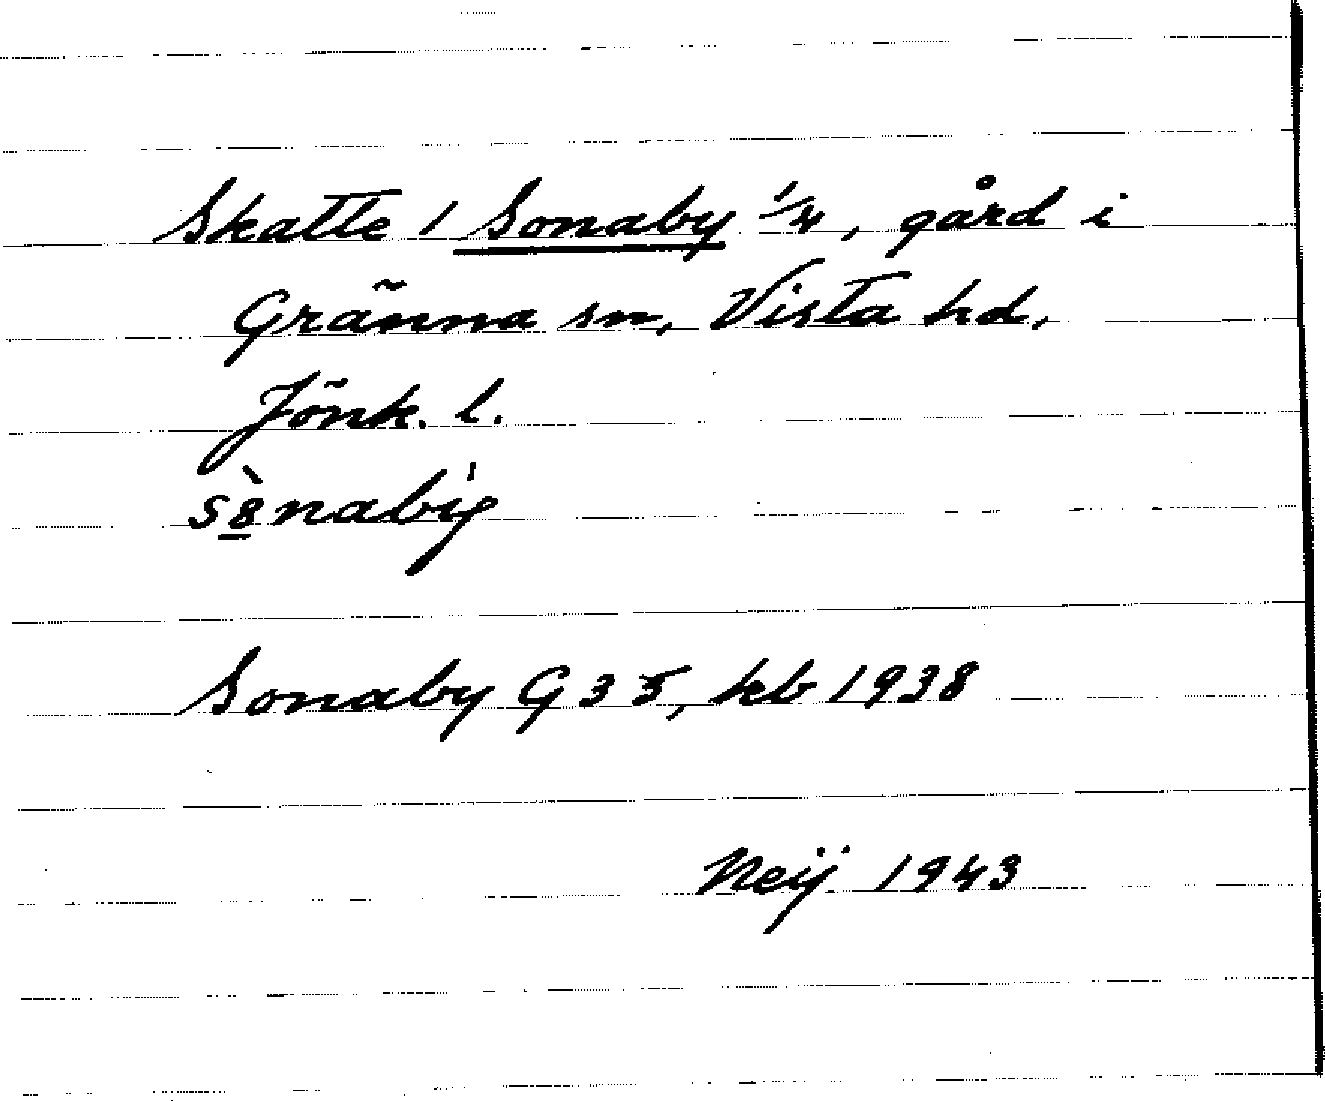 Skatte / Sonaby 1/4, gård i
Gränna sn, Vista hd,
Jönk. l.
Sonaby G 35, kb 1938
Neij 1943